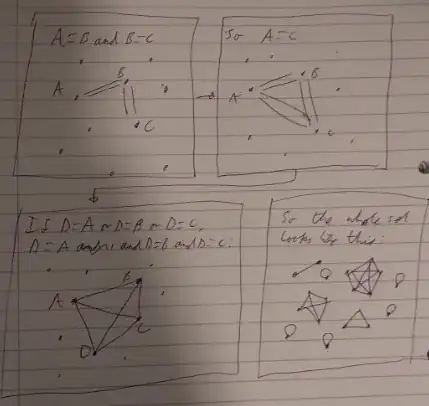 A=B and B=C
A
B
C
So A=C
A
B
C
If D=A or D=B or D=C,
D=A and D=B and D=C.
A
B
C
D
So the whole set
looks like this: